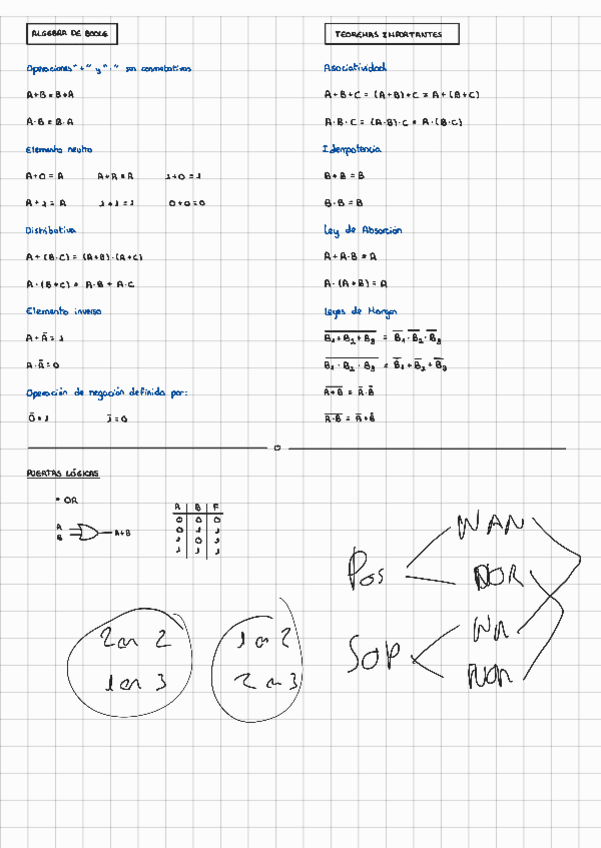 ALGEBRA DE BOOLE
Operaciones "+" y "·" son conmutativas
A+B=B+A
A·B=B·A
Elemento neutro
A+0=A A+A=A 1+0=1
A+1=A 1+1=1 0+0=0
Distributiva
A+(B·C)=(A+B)·(A+C)
A·(B+C)=A·B+A·C
Elemento inverso
A+Ā=1
A·Ā=0
Operación de negación definida por:
0̄=1 1̄=0
TEOREMAS IMPORTANTES
Asociatividad
A+B+C=(A+B)+C=A+(B+C)
A·B·C=(A·B)·C=A·(B·C)
Idempotencia
B+B=B
B·B=B
Ley de Absorción
A+A·B=A
A·(A+B)=A
Leyes de Morgan
\overline{B₁+B₂+B₃} = B̄₁·B̄₂·B̄₃
\overline{B₁·B₂·B₃} = B̄₁+B̄₂+B̄₃
\overline{A+B} = Ā·B̄
\overline{A·B} = Ā+B̄
PUERTAS LÓGICAS
• OR
A
B
A+B
A B F
0 0 0
0 1 1
1 0 1
1 1 1
2 en 2
1 en 3
1 en 2
2 en 3
Pos
NAN
NOR
SOP
NA
NOR